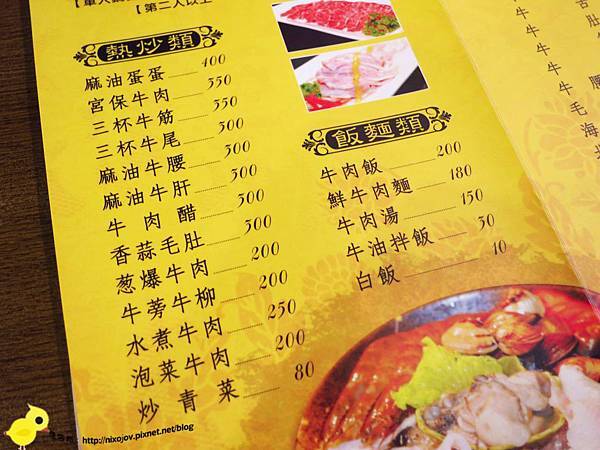 【單人鍋
【第二人以上
熱炒類
麻油蛋蛋 400
宮保牛肉 350
三杯牛筋 350
三杯牛尾 300
麻油牛腰 300
麻油牛肝 300
牛肉醋 300
香蒜毛肚 300
葱爆牛肉 200
牛蒡牛柳 200
水煮牛肉 250
泡菜牛肉 200
炒青菜 80
飯麵類
牛肉飯 200
鮮牛肉麵 180
牛肉湯 150
牛油拌飯 30
白飯 10
http://nixojov.pixnet.net/blog